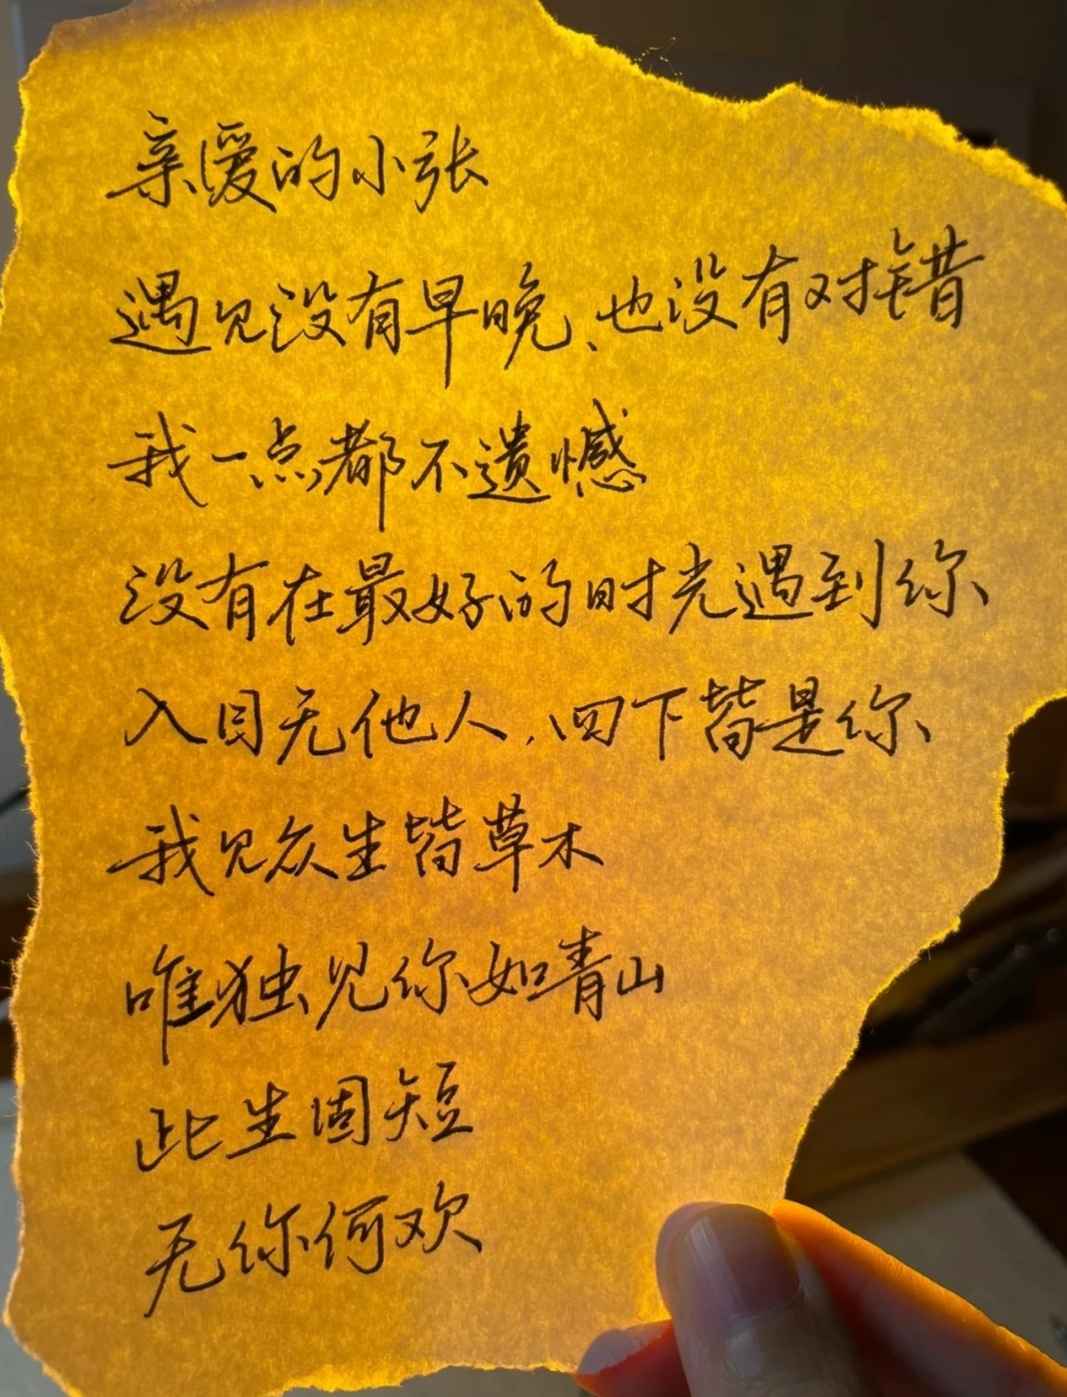 亲爱的小张
遇见没有早晚、也没有对错
我一点都不遗憾
没有在最好的时光遇到你、
入目无他人,四下皆是你、
我见众生皆草木
唯独见你如青山
此生固短
无你何欢